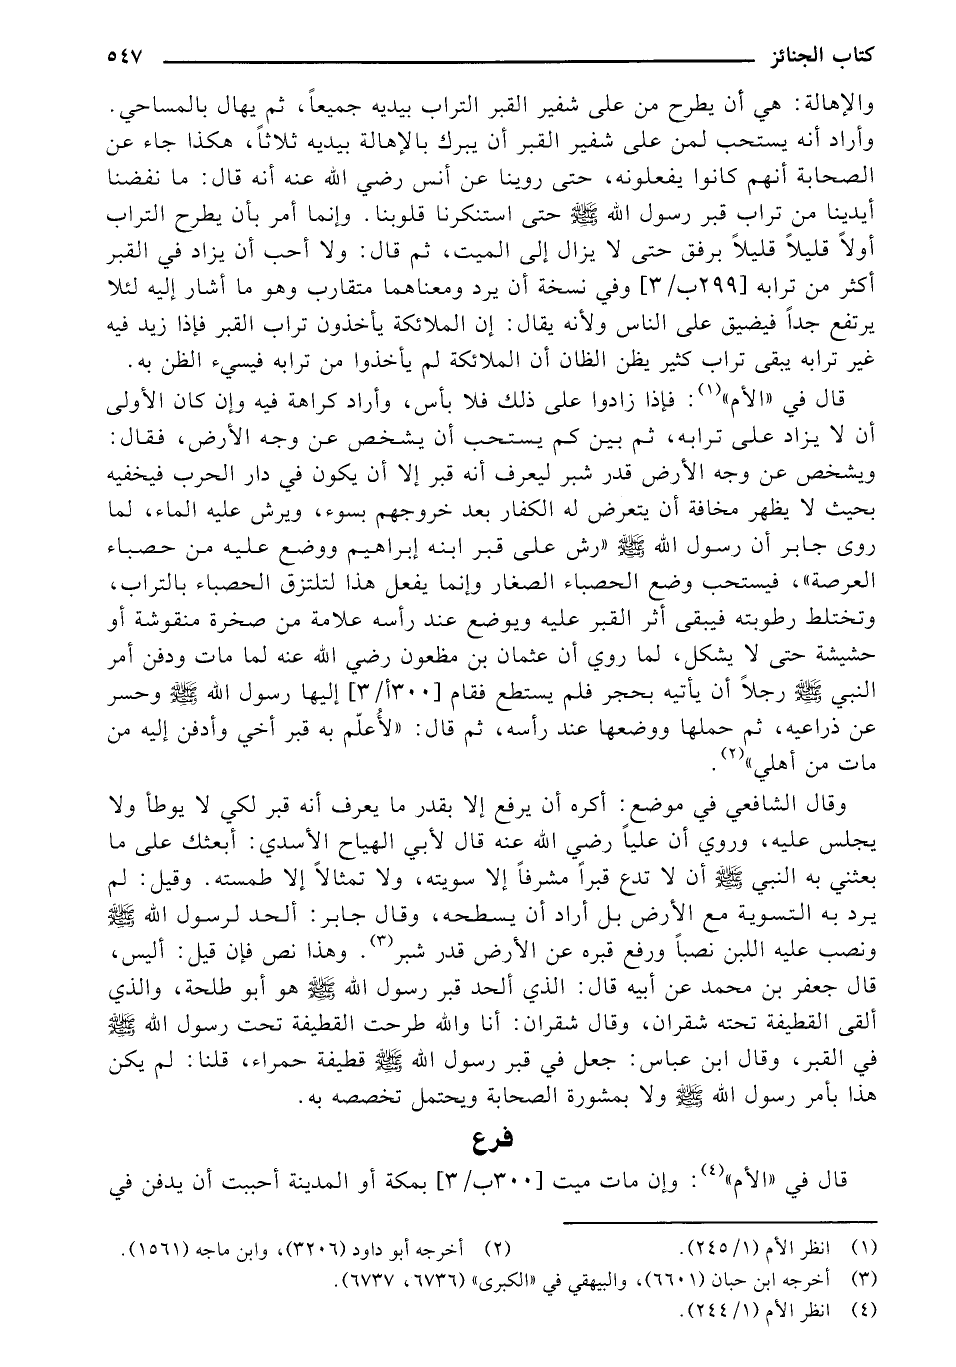 كتاب الجنائز ٥٤٧
والإهالة: هي أن يطرح من على شفير القبر التراب بيديه جميعاً، ثم يهال بالمساحي.
وأراد أنه يستحب لمن على شفير القبر أن يبرك بالإهالة بيديه ثلاثاً، هكذا جاء عن
الصحابة أنهم كانوا يفعلونه، حتى روينا عن أنس رضي الله عنه أنه قال: ما نفضنا
أيدينا من تراب قبر رسول الله ﷺ حتى استنكرنا قلوبنا. وإنما أمر بأن يطرح التراب
أولاً قليلاً قليلاً برفق حتى لا يزال إلى الميت، ثم قال: ولا أحب أن يزاد في القبر
أكثر من ترابه [٢٩٩ب/ ٣] وفي نسخة أن يرد ومعناهما متقارب وهو ما أشار إليه لئلا
يرتفع جداً فيضيق على الناس ولأنه يقال: إن الملائكة يأخذون تراب القبر فإذا زيد فيه
غير ترابه يبقى تراب كثير يظن الظان أن الملائكة لم يأخذوا من ترابه فيسيء الظن به.
قال في «الأم»(١): فإذا زادوا على ذلك فلا بأس، وأراد كراهة فيه وإن كان الأولى
أن لا يزاد على ترابه، ثم بين كم يستحب أن يشخص عن وجه الأرض، فقال:
ويشخص عن وجه الأرض قدر شبر ليعرف أنه قبر إلا أن يكون في دار الحرب فيخفيه
بحيث لا يظهر مخافة أن يتعرض له الكفار بعد خروجهم بسوء، ويرش عليه الماء، لما
روى جابر أن رسول الله ﷺ «رش على قبر ابنه إبراهيم ووضع عليه من حصباء
العرصة»، فيستحب وضع الحصباء الصغار وإنما يفعل هذا لتلتزق الحصباء بالتراب،
وتختلط رطوبته فيبقى أثر القبر عليه ويوضع عند رأسه علامة من صخرة منقوشة أو
حشيشة حتى لا يشكل، لما روي أن عثمان بن مظعون رضي الله عنه لما مات ودفن أمر
النبي ﷺ رجلاً أن يأتيه بحجر فلم يستطع فقام [٣٠٠أ/ ٣] إليها رسول الله ﷺ وحسر
عن ذراعيه، ثم حملها ووضعها عند رأسه، ثم قال: «لأُعلّم به قبر أخي وأدفن إليه من
مات من أهلي»(٢).
وقال الشافعي في موضع: أكره أن يرفع إلا بقدر ما يعرف أنه قبر لكي لا يوطأ ولا
يجلس عليه، وروي أن علياً رضي الله عنه قال لأبي الهياج الأسدي: أبعثك على ما
بعثني به النبي ﷺ أن لا تدع قبراً مشرفاً إلا سويته، ولا تمثالاً إلا طمسته. وقيل: لم
يرد به التسوية مع الأرض بل أراد أن يسطحه، وقال جابر: ألحد لرسول الله ﷺ
ونصب عليه اللبن نصباً ورفع قبره عن الأرض قدر شبر(٣). وهذا نص فإن قيل: أليس،
قال جعفر بن محمد عن أبيه قال: الذي ألحد قبر رسول الله ﷺ هو أبو طلحة، والذي
ألقى القطيفة تحته شقران، وقال شقران: أنا والله طرحت القطيفة تحت رسول الله ﷺ
في القبر، وقال ابن عباس: جعل في قبر رسول الله ﷺ قطيفة حمراء، قلنا: لم يكن
هذا بأمر رسول الله ﷺ ولا بمشورة الصحابة ويحتمل تخصصه به.
فرع
قال في «الأم»(٤): وإن مات ميت [٣٠٠ب/ ٣] بمكة أو المدينة أحببت أن يدفن في
(١) انظر الأم (١/ ٢٤٥). (٢) أخرجه أبو داود (٣٢٠٦)، وابن ماجه (١٥٦١).
(٣) أخرجه ابن حبان (٦٦٠١)، والبيهقي في «الكبرى» (٦٧٣٦، ٦٧٣٧).
(٤) انظر الأم (١/ ٢٤٤).